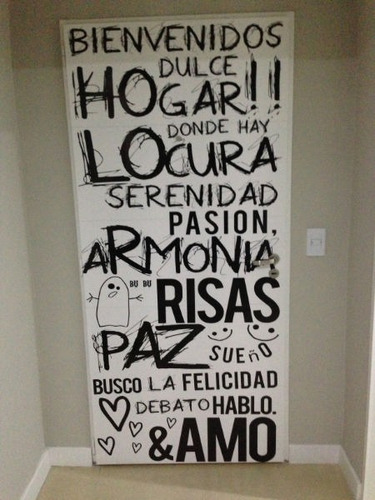 BIENVENIDOS
DULCE
HOGAR!!
DONDE HAY
LOCURA
SERENIDAD
PASION,
ARMONIA
BU BU
RISAS
PAZ
SUEñO
BUSCO LA FELICIDAD
DEBATO HABLO.
& AMO